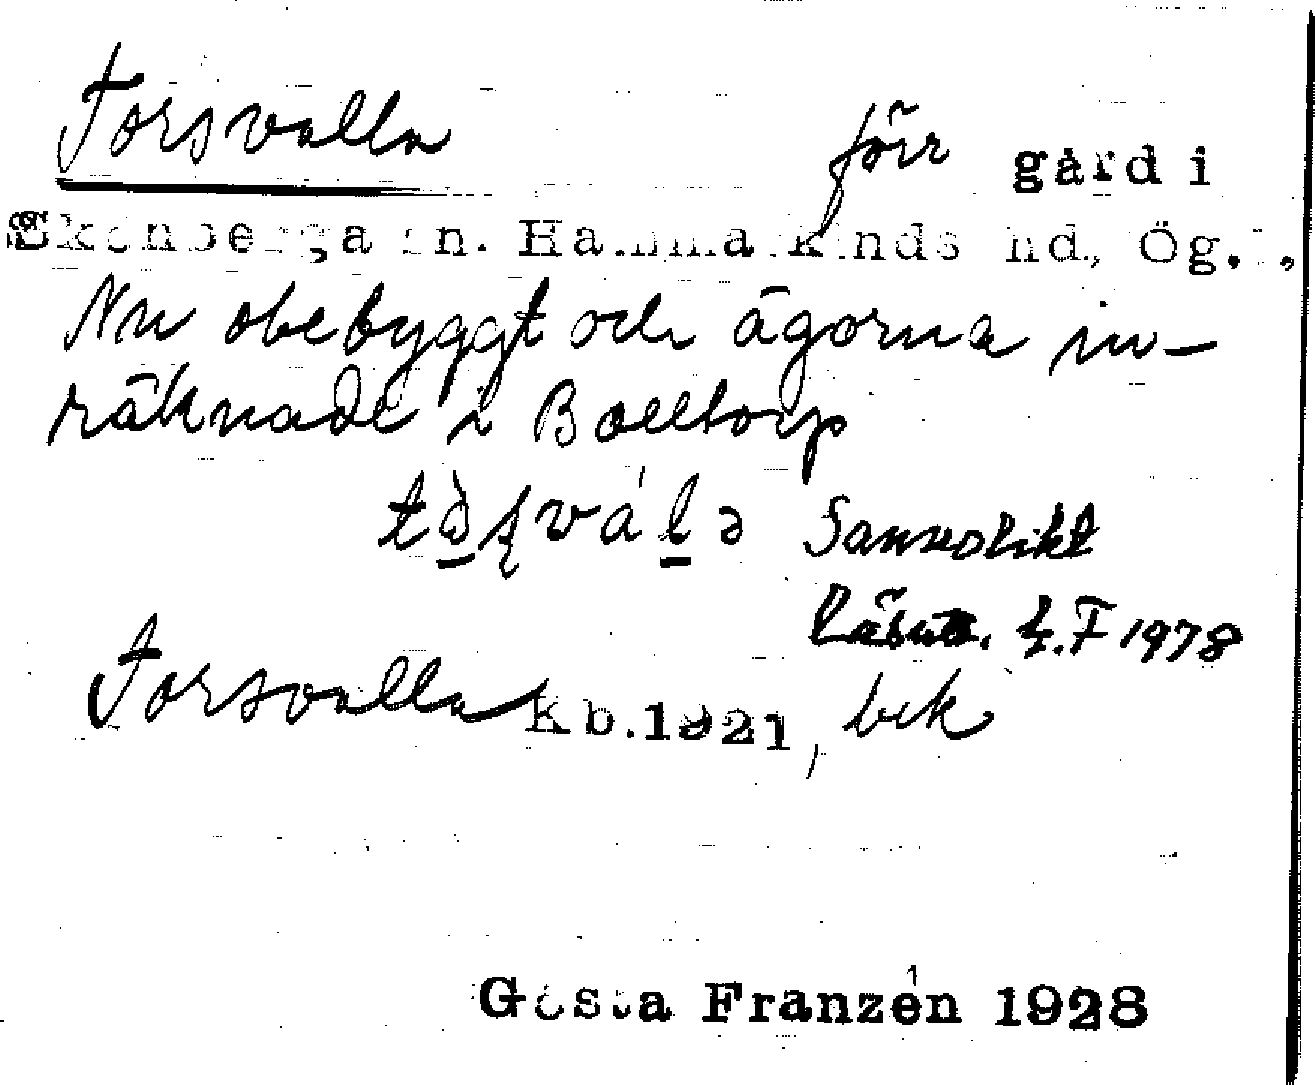 Torsvalla förr gård i
Skönberga sn. Hammarkinds hd, Ög.,
Nu obebyggt och ägorna in-
räknade i Bolltorp
Sannolikt
Läsn. G.F 1978
Torsvalla Kb.1921, bek
Gösta Franzén 1928